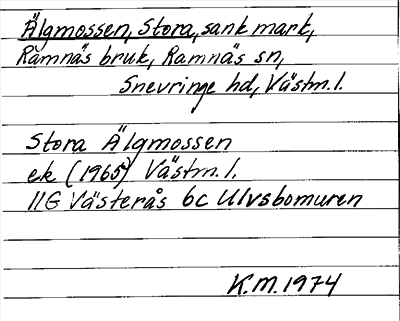 Älgmossen, Stora, sank mark,
Ramnäs bruk, Ramnäs sn,
Snevringe hd, Västm.l.
Stora Älgmossen
ek (1965) Västm.l.
11G Västerås 6c Ulvsbomuren
K.M.1974